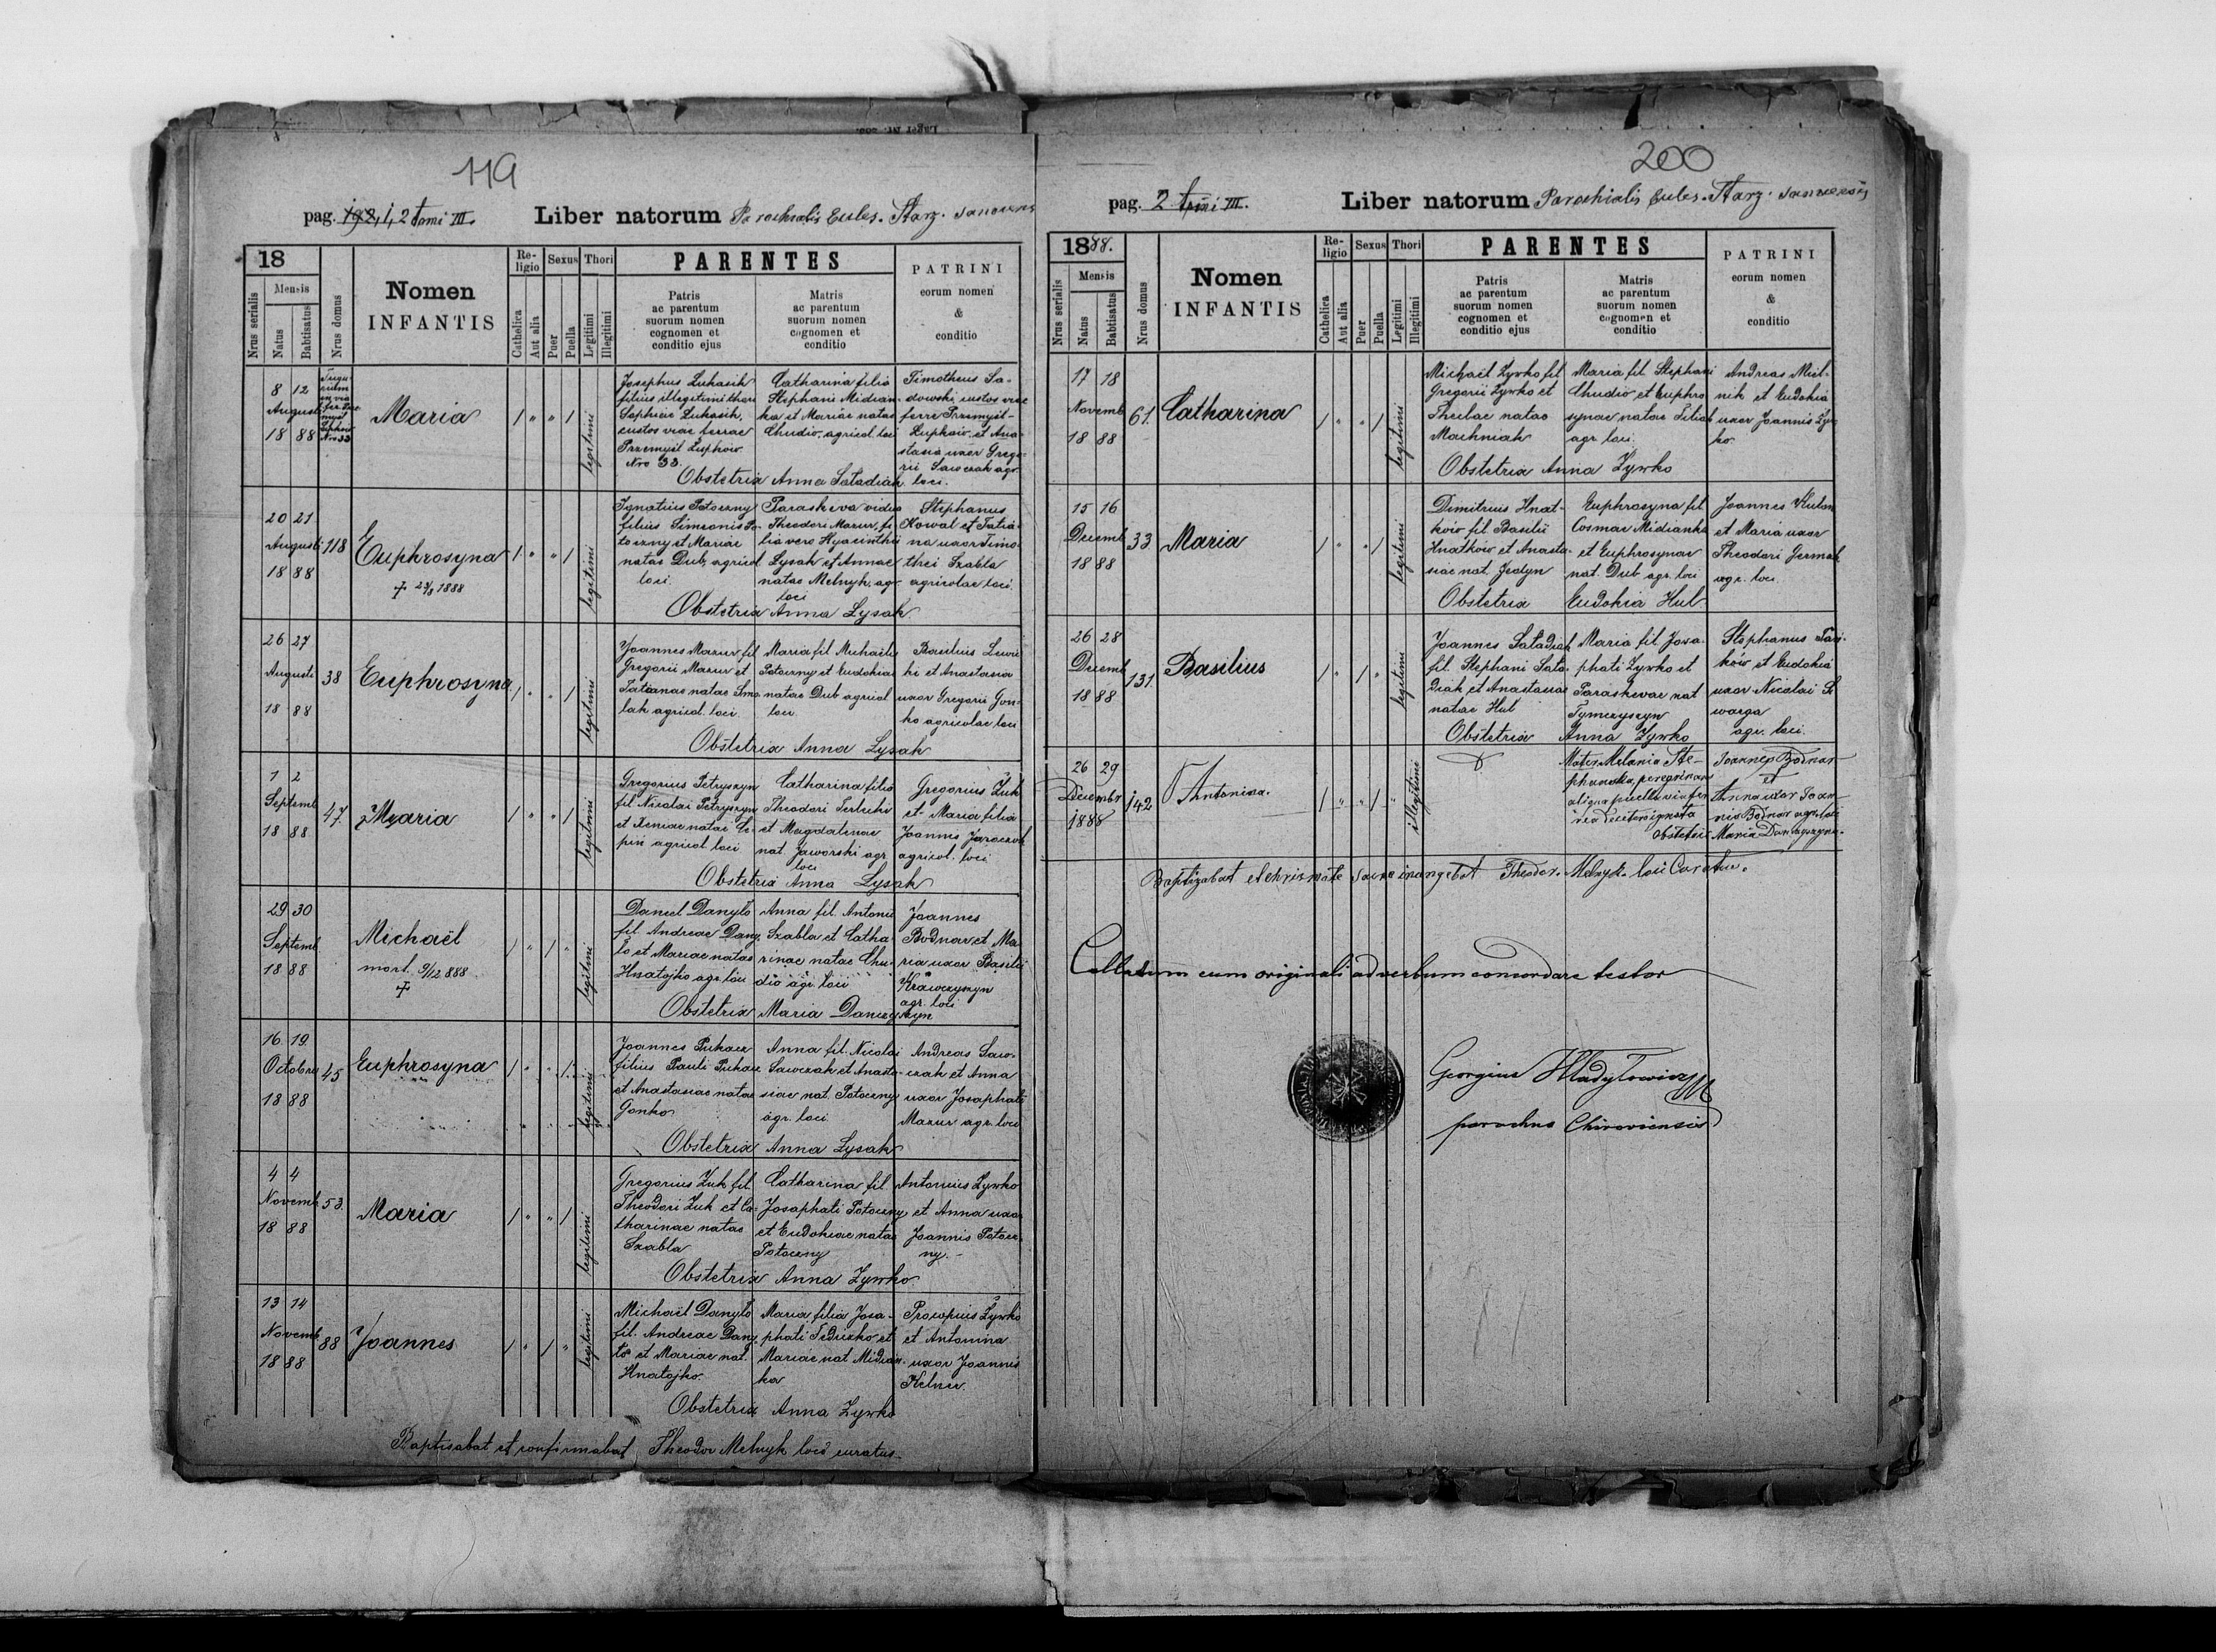 119
pag. 192, 1, 2 Tomi III.
Liber natorum Parochialis Eccles. Starz. Sanocens
18
Nrus serialis
Mensis
Natus
Babtisatus
Nrus domus
Nomen
INFANTIS
Religio
Catholica
Aut alia
Sexus
Puer
Puella
Thori
Legitimi
Illegitimi
PARENTES
Patris
ac parentum
suorum nomen
cognomen et
conditio ejus
Matris
ac parentum
suorum nomen
cognomen et
conditio
PATRINI
eorum nomen
&
conditio
8 12
Augusti
18 88
Maria
legitimi
Josephus Lukasik
filius illegitimi thori
Sophiae Lukasik,
custos viae ferrae
Przemysl Lupkow
Nro 33.
Catharina filia
Stephani Midian-
ka et Mariae natae
Chudio, agricol. loci
Timotheus Sa-
dowski, custos viae
ferre Przemysl-
Lupkow, et Ana-
stasia uxor Grego-
rii Sawczak agr.
loci.
Obstetrix Anna Satadiak
20 21
Augusti
18 88
118
Euphrosyna
legitimi
Ignatius Potoczny
filius Simeonis Po-
toczny et Mariae
natae Dub, agricol
loci.
Paraskeva vidua
Theodori Mazur, fi-
lia vero Hyacinthi
Lysak et Annae
natae Melnyk, agr.
loci
Stephanus
Kowal et Tatia-
na uxor Timo-
thei Szabla
agricolae loci
Obstetrix Anna Lysak
26 27
Augusti
18 88
38
Euphrosyna
legitimi
Joannes Mazur fil
Gregorii Mazur et
Tatianae natae Smo-
lak agricol. loci
Maria fil Michaelis
Potoczny et Eudokiae
natae Dub agricol
loci
Basilius Lewic
ki et Anastasia
uxor Gregorii Gon-
ko agricolae loci
Obstetrix Anna Lysak
1 2
Septemb
18 88
47.
Maria
legitimi
Gregorius Petryszyn
fil Nicolai Petryszyn
et Xeniae natae Ce-
pin agricol loci
Catharina filia
Theodori Terlecki
et Magdalenae
nat. Jaworski agr
loci
Gregorius Zuk
et Maria filia
Joannis Jaroczak
agricol. loci
Obstetrix Anna Lysak
29 30
Septemb
18 88
Michaël
mort. 9/12 888
legitimi
Daniel Danyło
fil. Andreae Dany-
ło et Mariae natae
Hnatojko agr. loci
Anna fil. Antonii
Szabla et Catha-
rinae natae Chu-
dio agr. loci
Joannes
Bodnar et Ma-
ria uxor Basilii
Krawczyszyn
agr. loci
Obstetrix Maria Danczyszyn
16 19.
Octobris
18 88
45
Euphrosyna
legitimi
Joannes Pukacz
filius Pauli Pukacz
et Anastasiae natae
Gonko
Anna fil. Nicolai
Sawczak et Anasta-
siae nat. Potoczny
agr. loci
Andreas Saw-
czak et Anna
uxor Josaphati
Mazur agr. loci
Obstetrix Anna Lysak
4 4
Novemb
18 88
53.
Maria
legitimi
Gregorius Zuk fil.
Theodori Zuk et Ca-
tharinae natae
Szabla
Catharina fil.
Josaphati Potoczny
et Eudokiae natae
Potoczny
Antonius Żywko
et Anna uxor
Joannis Potocz-
ny.
Obstetrix Anna Żywko
13 14
Novemb
18 88
88
Joannes
legitimi
Michaël Danyło
fil. Andreae Dany-
ło et Mariae nat.
Hnatojko.
Maria filia Josa-
phati Feduszko et
Mariae nat Midian-
ka
Procopius Żywko
et Antonina
uxor Joannis
Kelner.
Obstetrix Anna Żywko
Baptisabat et confirmabat Theodor Melnyk loci curatus.
200
pag. 2 Tomi III.
Liber natorum Parochialis Eccles. Starz. Sanocensis
1888.
Nrus serialis
Mensis
Natus
Babtisatus
Nrus domus
Nomen
INFANTIS
Religio
Catholica
Aut alia
Sexus
Puer
Puella
Thori
Legitimi
Illegitimi
PARENTES
Patris
ac parentum
suorum nomen
cognomen et
conditio ejus
Matris
ac parentum
suorum nomen
cognomen et
conditio
PATRINI
eorum nomen
&
conditio
17 18
Novemb
18 88
61.
Catharina
legitimi
Michaël Żywko fil
Gregorii Żywko et
Theclae natae
Machniak
Maria fil. Stephani
Chudio et Euphro
synae natae
agr. loci.
Andreas Miel-
nik et Eudokia
uxor Joannis Żyw
ko.
Obstetrix Anna Żywko
15 16
Decemb
18 88
33
Maria
legitimi
Dimitrius Hnat-
kow fil. Basilii
Hnatkow et Anasta-
siae nat. Jedyn
Euphrosyna fil
Cosmae Midianka
et Euphrosynae
nat. Dub agr. loci
Joannes
et Maria uxor
Theodori Jermak
agr. loci
Obstetrix Eudokia Hul
26 28
Decemb
18 88
131.
Basilius
legitimi
Joannes Satadiak
fil. Stephani Sata-
diak et Anastasiae
natae Hul
Maria fil. Josa-
phati Żywko et
Paraskevae nat
Tymczyszyn
Stephanus
et Eudokia
uxor Nicolai
agr. loci.
Obstetrix Anna Żywko
26 29
Decembr
1888
142
Antonina.
illegitimi
Mater Melania Ste-
phanska, peregrinans
Joannes Bodnar
et
Anna uxor Joan-
nis Bodnar agr. loci
Obstetrix Maria Danczyszyn.
Baptizabat et chrismate sacro inungebat Theodor. Melnyk loci Curatus.
Collatum cum originali ad verbum concordare testor
Georgius Hładyłowicz
parochus Chiroviensis